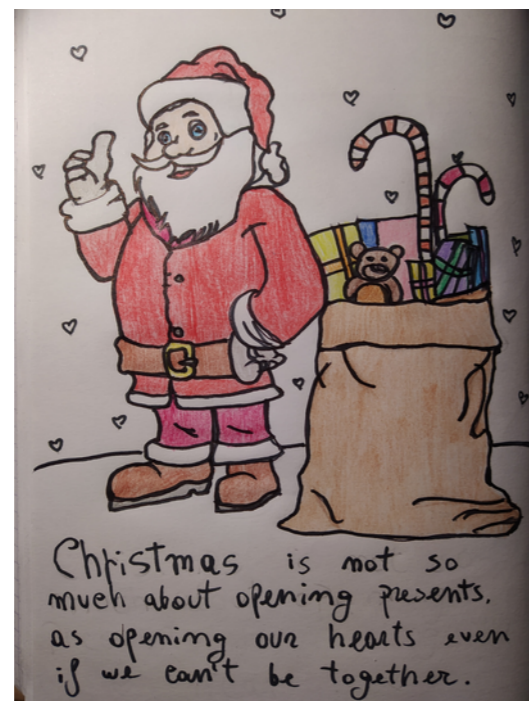 Christmas is not so
much about opening presents,
as opening our hearts even
if we can't be together.